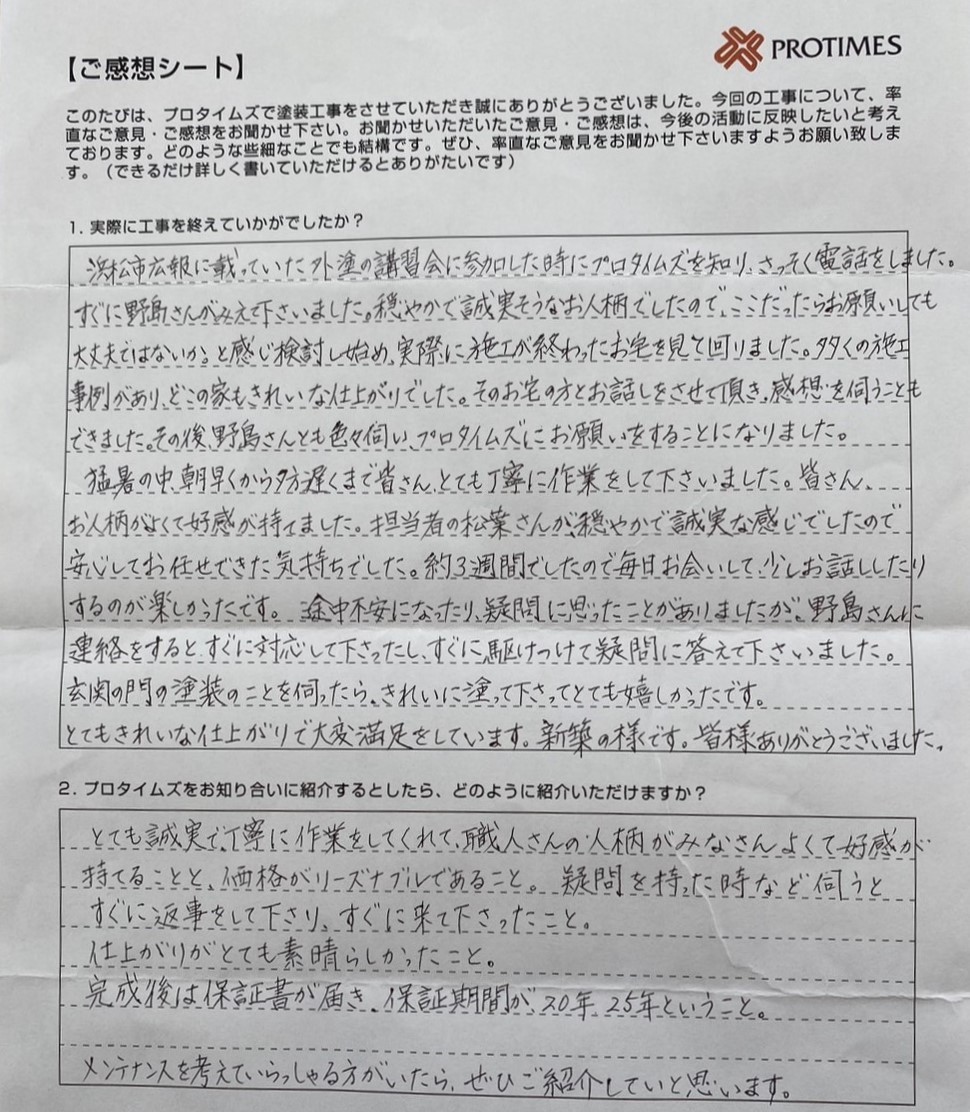 PROTIMES
【ご感想シート】
このたびは、プロタイムズで塗装工事をさせていただき誠にありがとうございました。今回の工事について、率
直なご意見・ご感想をお聞かせ下さい。お聞かせいただいたご意見・ご感想は、今後の活動に反映したいと考え
ております。どのような些細なことでも結構です。ぜひ、率直なご意見をお聞かせ下さいますようお願い致しま
す。（できるだけ詳しく書いていただけるとありがたいです）
1. 実際に工事を終えていかがでしたか？
浜松市広報に載っていた外塗の講習会に参加した時にプロタイムズを知り、さっそく電話をしました。
すぐに野島さんがみえて下さいました。穏やかで誠実そうなお人柄でしたので、ここだったらお願いしても
大丈夫ではないか。と感じ検討し始め、実際に施工が終わったお宅を見て回りました。多くの施工
事例があり、どこの家もきれいな仕上がりでした。そのお宅の方とお話しをさせて頂き、感想を伺うことも
できました。その後、野島さんとも色々伺い、プロタイムズにお願いをすることになりました。
猛暑の中、朝早くから夕方遅くまで皆さん、とても丁寧に作業をして下さいました。皆さん、
お人柄がよくて好感が持てました。担当者の松葉さんが、穏やかで誠実な感じでしたので
安心してお任せできた気持ちでした。約3週間でしたので毎日お会いして、少しお話ししたり
するのが楽しかったです。途中不安になったり、疑問に思ったことがありましたが、野島さんに
連絡をすると、すぐに対応して下さったし、すぐに駆けつけて疑問に答えて下さいました。
玄関の門の塗装のことを伺ったら、きれいに塗って下さってとても嬉しかったです。
とてもきれいな仕上がりで大変満足をしています。新築の様です。皆様ありがとうございました。
2. プロタイムズをお知り合いに紹介するとしたら、どのように紹介いただけますか？
とても誠実で、丁寧に作業をしてくれて、職人さんの人柄がみなさんよくて好感が
持てることと、価格がリーズナブルであること。疑問を持った時など伺うと
すぐに返事をして下さり、すぐに来て下さったこと。
仕上がりがとても素晴らしかったこと。
完成後は保証書が届き、保証期間が20年、25年ということ。
メンテナンスを考えていらっしゃる方がいたら、ぜひご紹介していと思います。